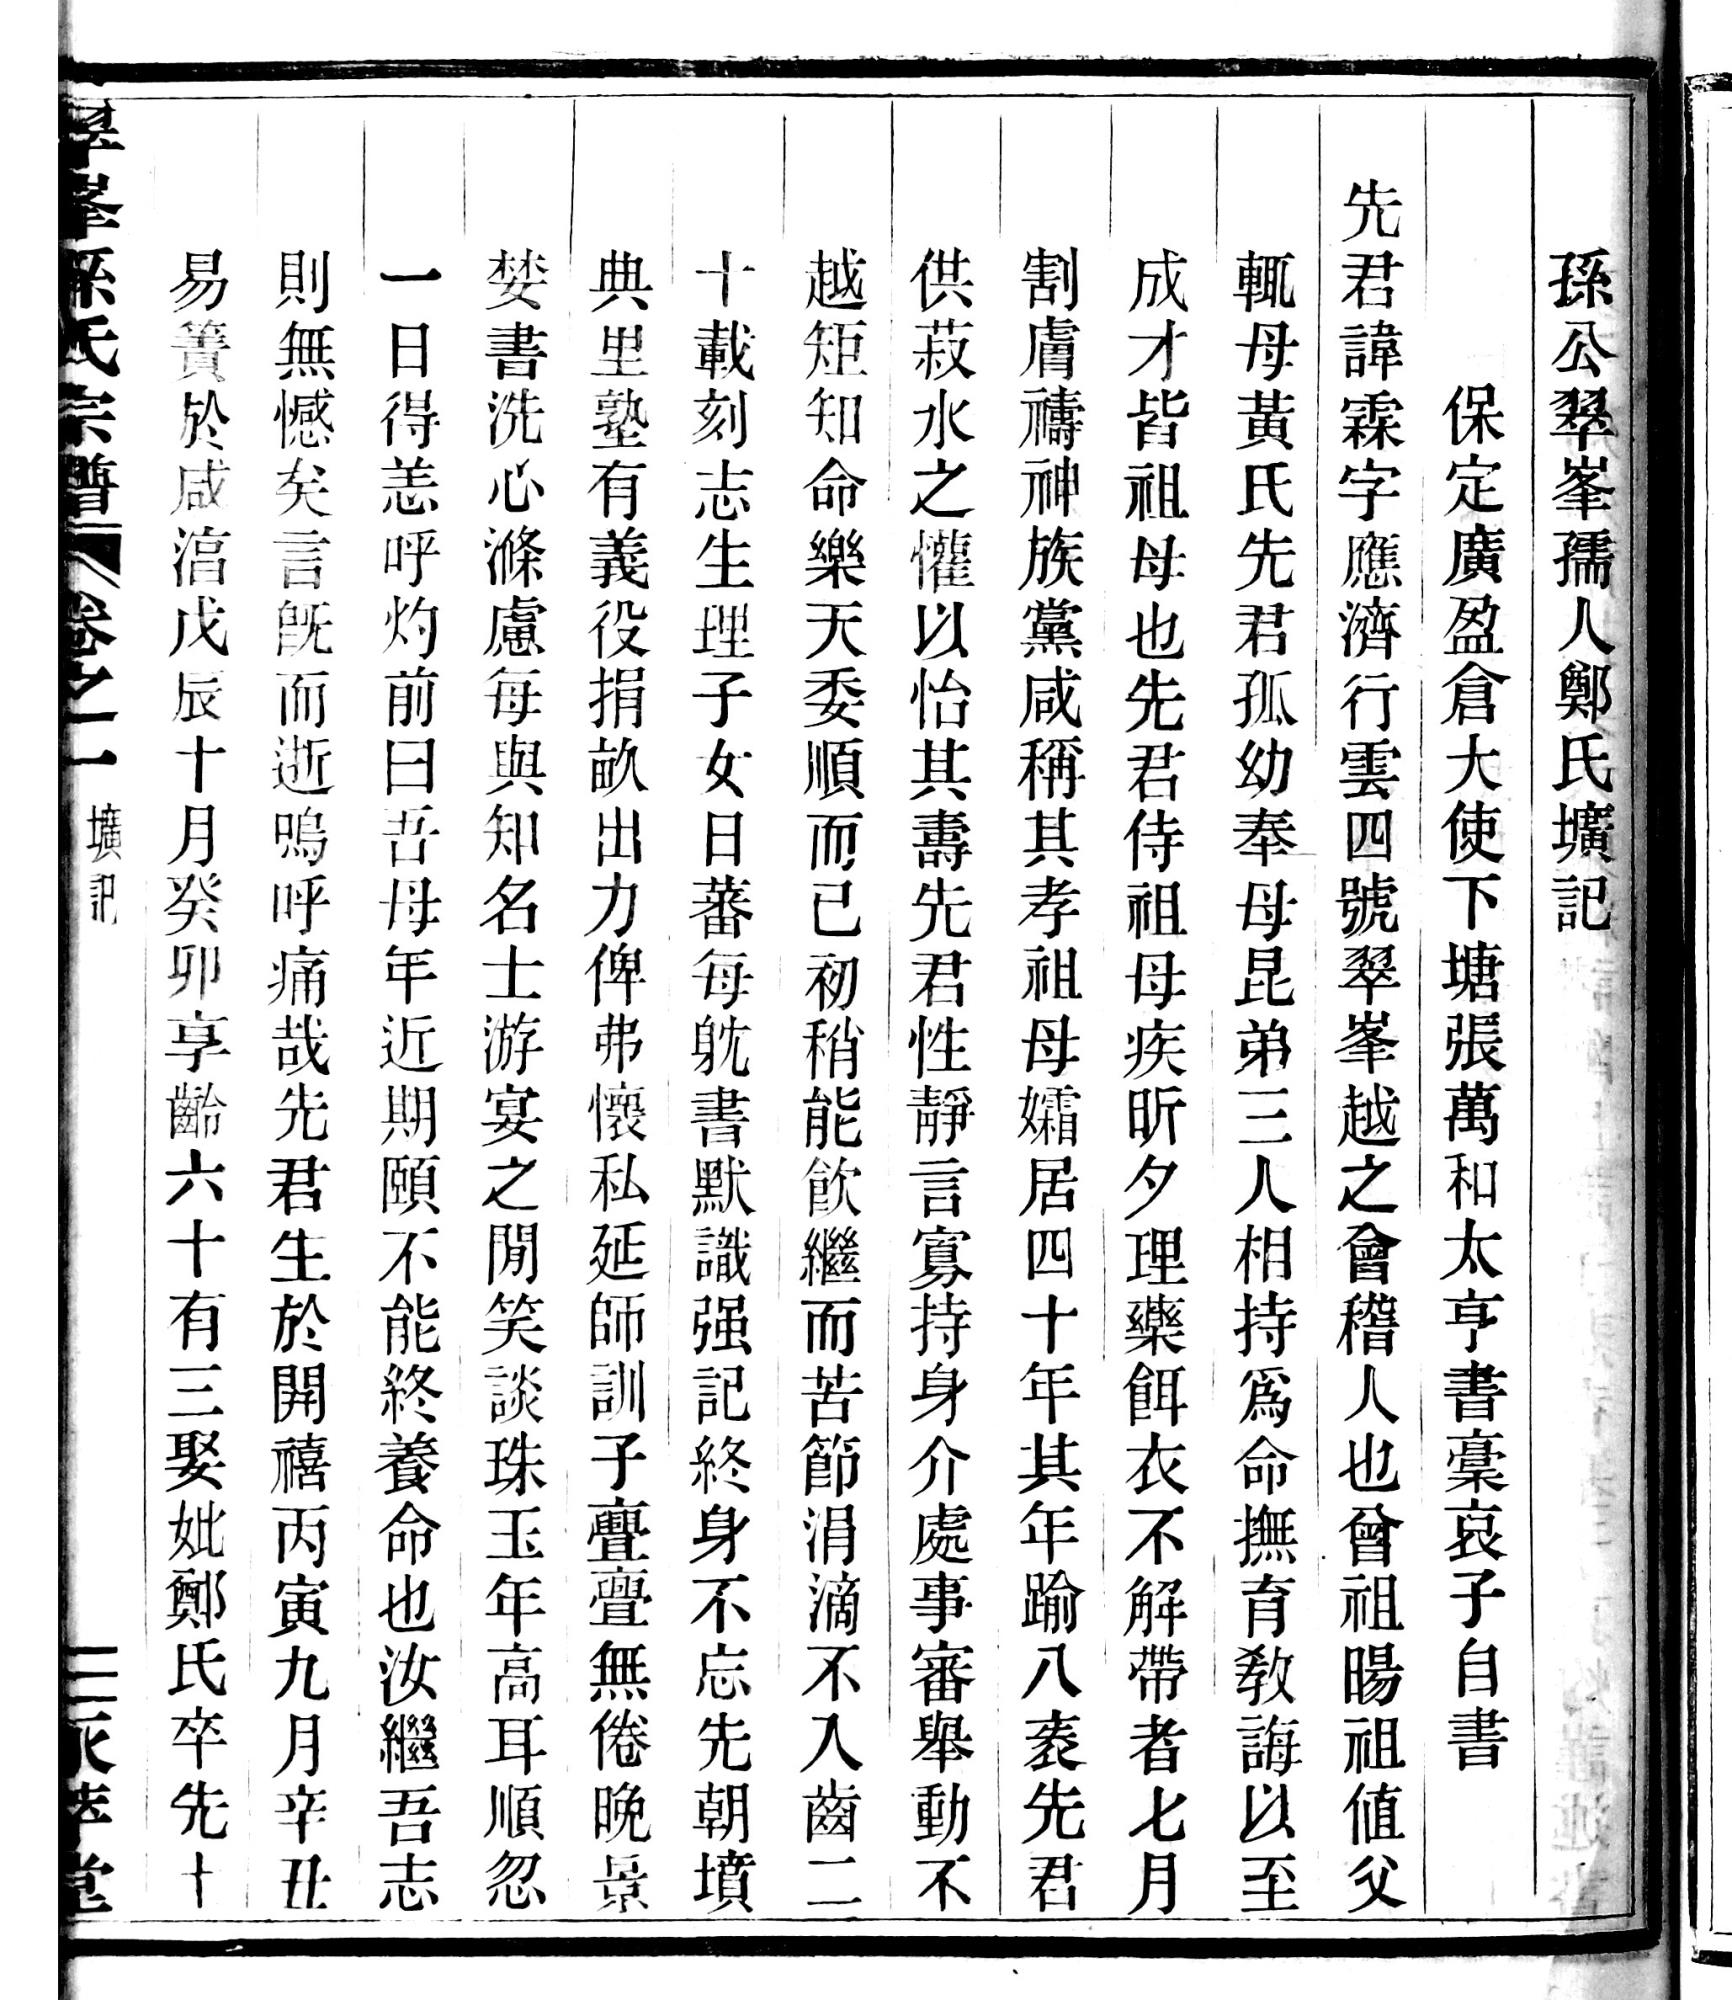 孫公翠峯孺人鄭氏壙記
保定廣盈倉大使下塘張萬和太亨書稾哀子自書
先君諱霖字應濟行雲四號翠峯越之會稽人也曾祖暘祖値父
輒母黃氏先君孤幼奉母昆弟三人相持爲命撫育教誨以至
成才皆祖母也先君侍祖母疾昕夕理藥餌衣不解帶者七月
割膚禱神族黨咸稱其孝祖母孀居四十年其年踰八袠先君
供菽水之懽以怡其壽先君性靜言寡持身介處事審舉動不
越矩知命樂天委順而已初稍能飮繼而苦節涓滴不入齒二
十載刻志生理子女日蕃每躭書默識强記終身不忘先朝墳
典里塾有義役捐畝出力俾弗懷私延師訓子亹亹無倦晚景
婪書洗心滌慮每與知名士游宴之閒笑談珠玉年高耳順忽
一日得恙呼灼前曰吾母年近期頤不能終養命也汝繼吾志
則無憾矣言旣而逝嗚呼痛哉先君生於開禧丙寅九月辛丑
易簀於咸湻戊辰十月癸卯享齡六十有三娶妣鄭氏卒先十
翠峯孫氏宗譜 卷之一 壙記 二 永萃堂